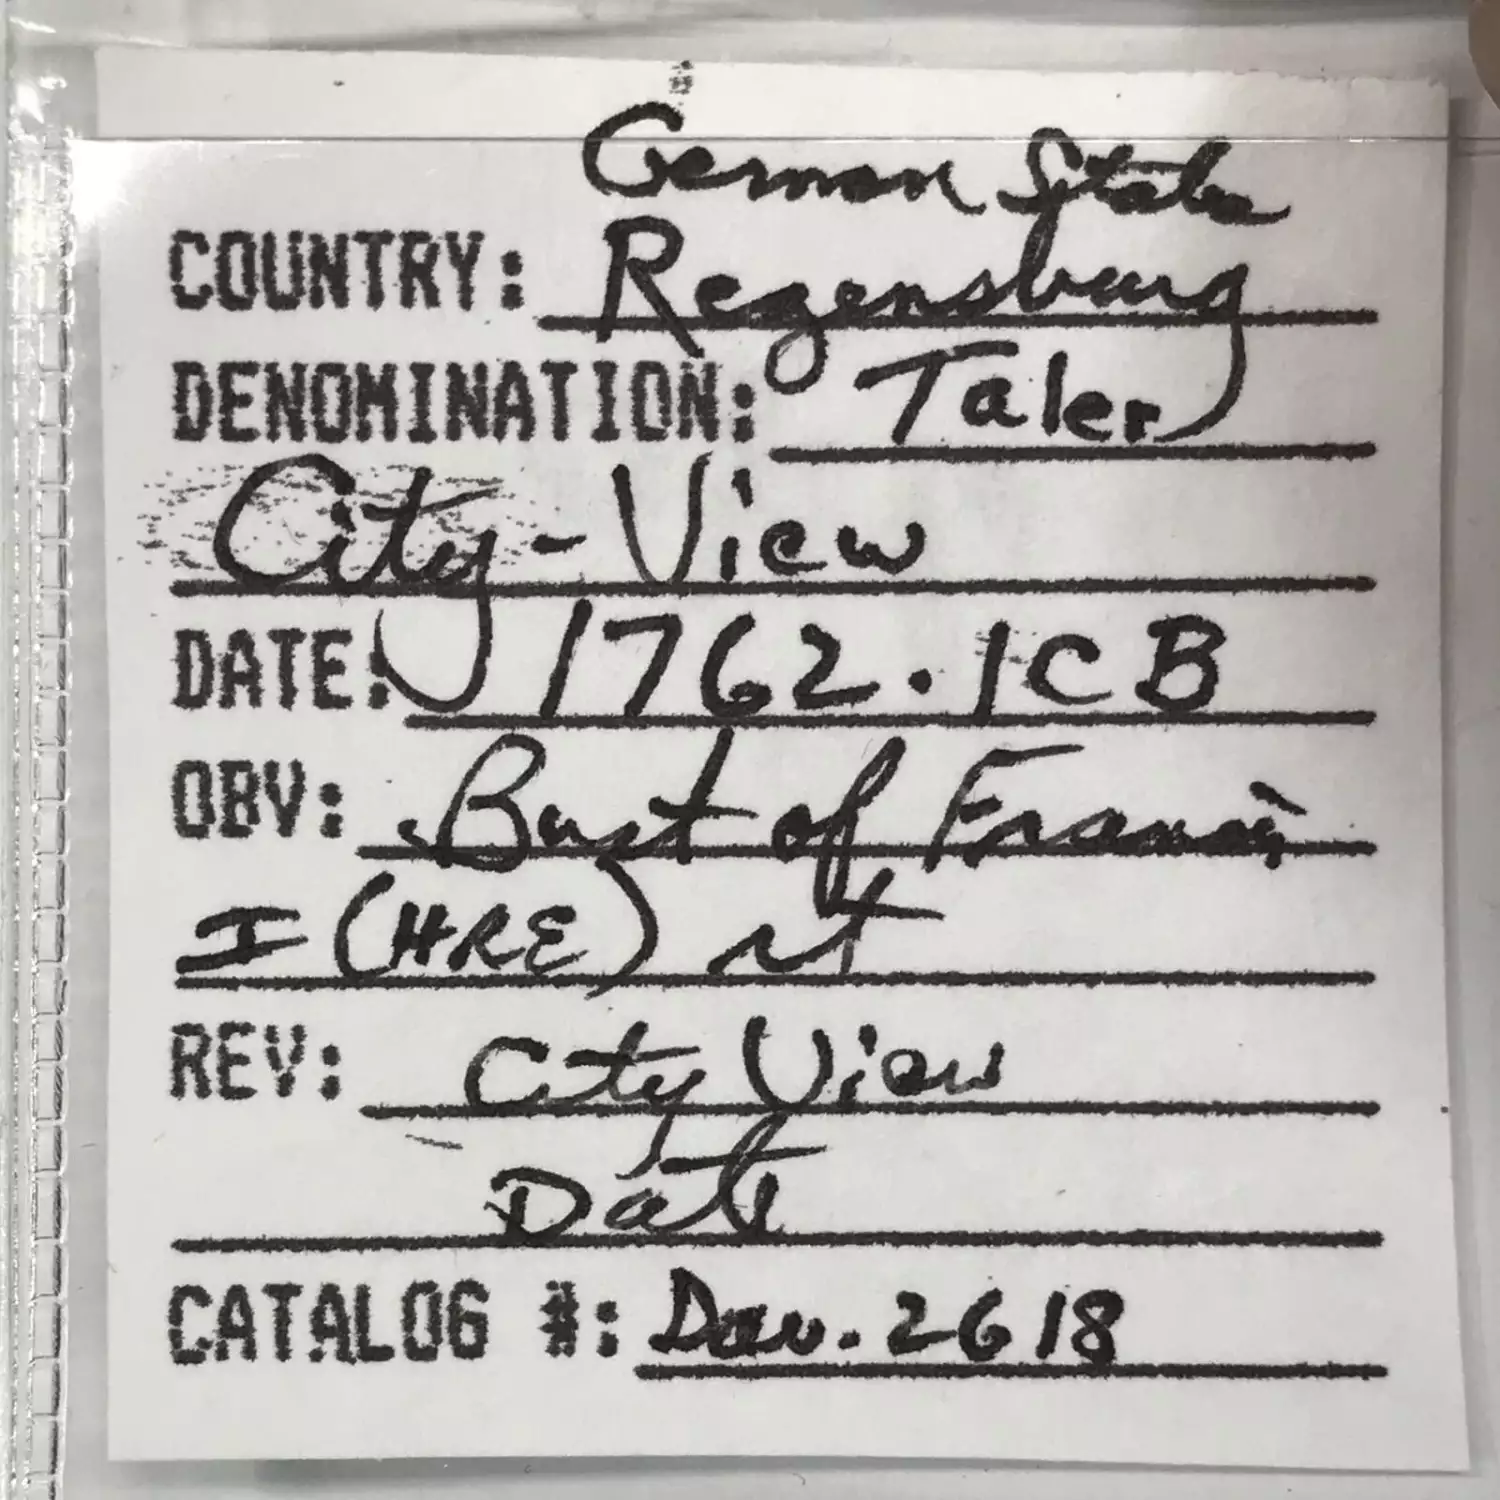 German States
COUNTRY: Regensburg
DENOMINATION: Taler
City-View
DATE: 1762. ICB
OBV: Bust of Francis
I (HRE) rt
REV: City View
Date
CATALOG #: Dav. 2618